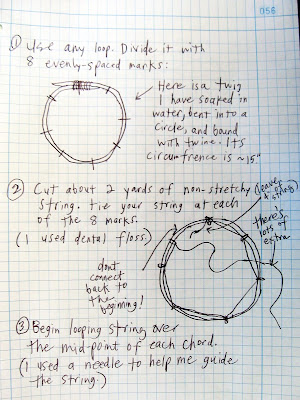 056
① Use any loop. Divide it with
8 evenly-spaced marks:
Here is a twig
I have soaked in
water, bent into a
circle, and bound
with twine. Its
circumfrence is ~15"
② Cut about 2 yards of non-stretchy
string. tie your string at each
of the 8 marks.
(I used dental floss.)
(leave
there's
lots of
extra
dont
connect
back to
the
beginning!
③ Begin looping string over
the mid-point of each chord.
(I used a needle to help me guide
the string.)